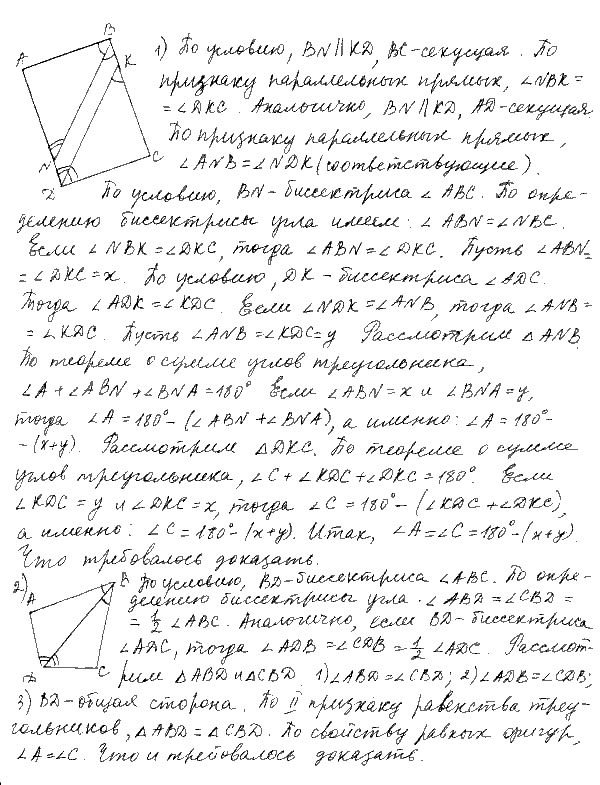 B
A
K
1) По условию, BN∥KD, BC-секущая. По
признаку параллельных прямых, ∠NBK =
= ∠DKC. Аналогично, BN∥KD, AD-секущая
По признаку параллельных прямых,
C
N
∠ANB = ∠NDK (соответствующие).
D
По условию, BN-биссектриса ∠ABC. По опре-
делению биссектрисы угла имеем: ∠ABN = ∠NBC.
Если ∠NBK = ∠DKC, тогда ∠ABN = ∠DKC. Пусть ∠ABN =
= ∠DKC = x. По условию, DK-биссектриса ∠ADC.
Тогда ∠ADK = ∠KDC. Если ∠NDK = ∠ANB, тогда ∠ANB =
= ∠KDC. Пусть ∠ANB = ∠KDC = y Рассмотрим △ANB.
По теореме о сумме углов треугольника,
∠A + ∠ABN + ∠BNA = 180° Если ∠ABN = x и ∠BNA = y,
тогда ∠A = 180° - (∠ABN + ∠BNA), а именно: ∠A = 180° -
- (x+y). Рассмотрим △DKC. По теореме о сумме
углов треугольника, ∠C + ∠KDC + ∠DKC = 180°. Если
∠KDC = y и ∠DKC = x, тогда ∠C = 180° - (∠KDC + ∠DKC),
а именно: ∠C = 180° - (x+y). Итак, ∠A = ∠C = 180° - (x+y).
Что требовалось доказать.
2)
B
A
По условию, BD-биссектриса ∠ABC. По опре-
делению биссектрисы угла. ∠ABD = ∠CBD =
= 1/2 ∠ABC. Аналогично, если BD-биссектриса
∠ADC, тогда ∠ADB = ∠CDB = 1/2 ∠ADC. Рассмот-
D
C
рим △ABD и △CBD. 1) ∠ABD = ∠CBD; 2) ∠ADB = ∠CDB;
3) BD-общая сторона. По II признаку равенства треу-
гольников, △ABD = △CBD. По свойству равных фигур,
∠A = ∠C. Что и требовалось доказать.